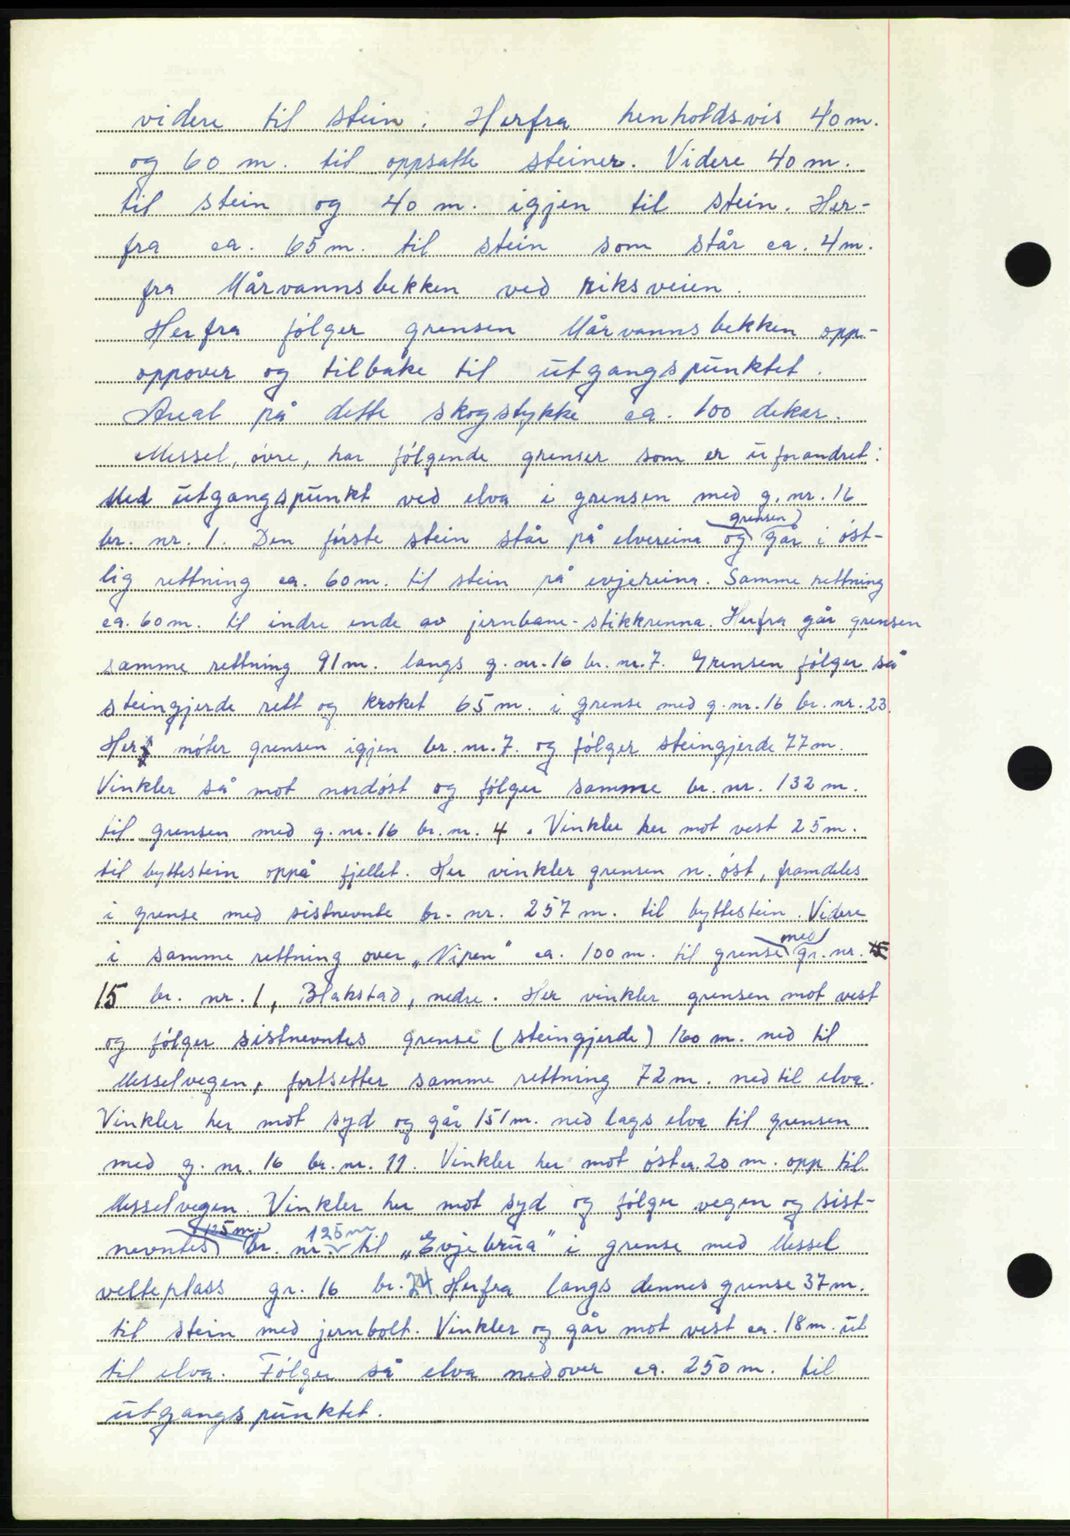 videre til stein. Herfra henholdsvis 40 m.
og 60 m. til oppsatte steiner. Videre 40 m.
til stein og 40 m. igjen til stein. Her-
fra ca. 65 m. til stein som står ca. 4 m.
fra Mårvannsbekken ved riksveien.
Herfra følger grensen Mårvannsbekken opp-
oppover og tilbake til utgangspunktet.
Areal på dette skogstykke ca. 600 dekar.
Messel, øvre, har følgende grenser som er uforandret:
Med utgangspunkt ved elva i grensen med g. nr. 16
grensen
br. nr. 1. Den første stein står på elvereina og går i øst-
lig rettning ca. 60 m. til stein på evjereina. Samme rettning
ca. 60 m. til indre ende av jernbane-stikkrenna. Herfra går grensen
samme rettning 91 m. langs g. nr. 16 br. nr. 7. Grensen følger så
steingjerde rett og kroket 65 m. i grense med g. nr. 16 br. nr. 23.
Her møter grensen igjen br. nr. 7. og følger steingjerde 77 m.
Vinkler så mot nordøst og følger samme br. nr. 132 m.
til grensen med g. nr. 16 br. nr. 4. Vinkler her mot vest 25 m.
til byttestein oppå fjellet. Her vinkler grensen n. øst, framdeles
i grense med sistnevnte br. nr. 257 m. til byttestein. Videre
med
i samme rettning over „Nipen" ca. 100 m. til grense gr. nr.
15 br. nr. 1, Blakstad, nedre. Her vinkler grensen mot vest
og følger sistnevntes grense (steingjerde) 160 m. ned til
Messelvegen, fortsetter samme rettning 72 m. ned til elva.
Vinkler her mot syd og går 151 m. ned lags elva til grensen
med g. nr. 16 br. nr. 11. Vinkler her mot øst ca. 20 m. opp til
Messelvegen. Vinkler her mot syd og følger vegen og sist-
125 m. 125 m
nevntes br. nr til „Evjebrua" i grense med Messel
velteplass gr. 16 br. 24 Herfra langs dennes grense 37 m.
til stein med jernbolt. Vinkler og går mot vest ca. 18 m. ut
til elva. Følger så elva nedover ca. 250 m. til
utgangspunktet.